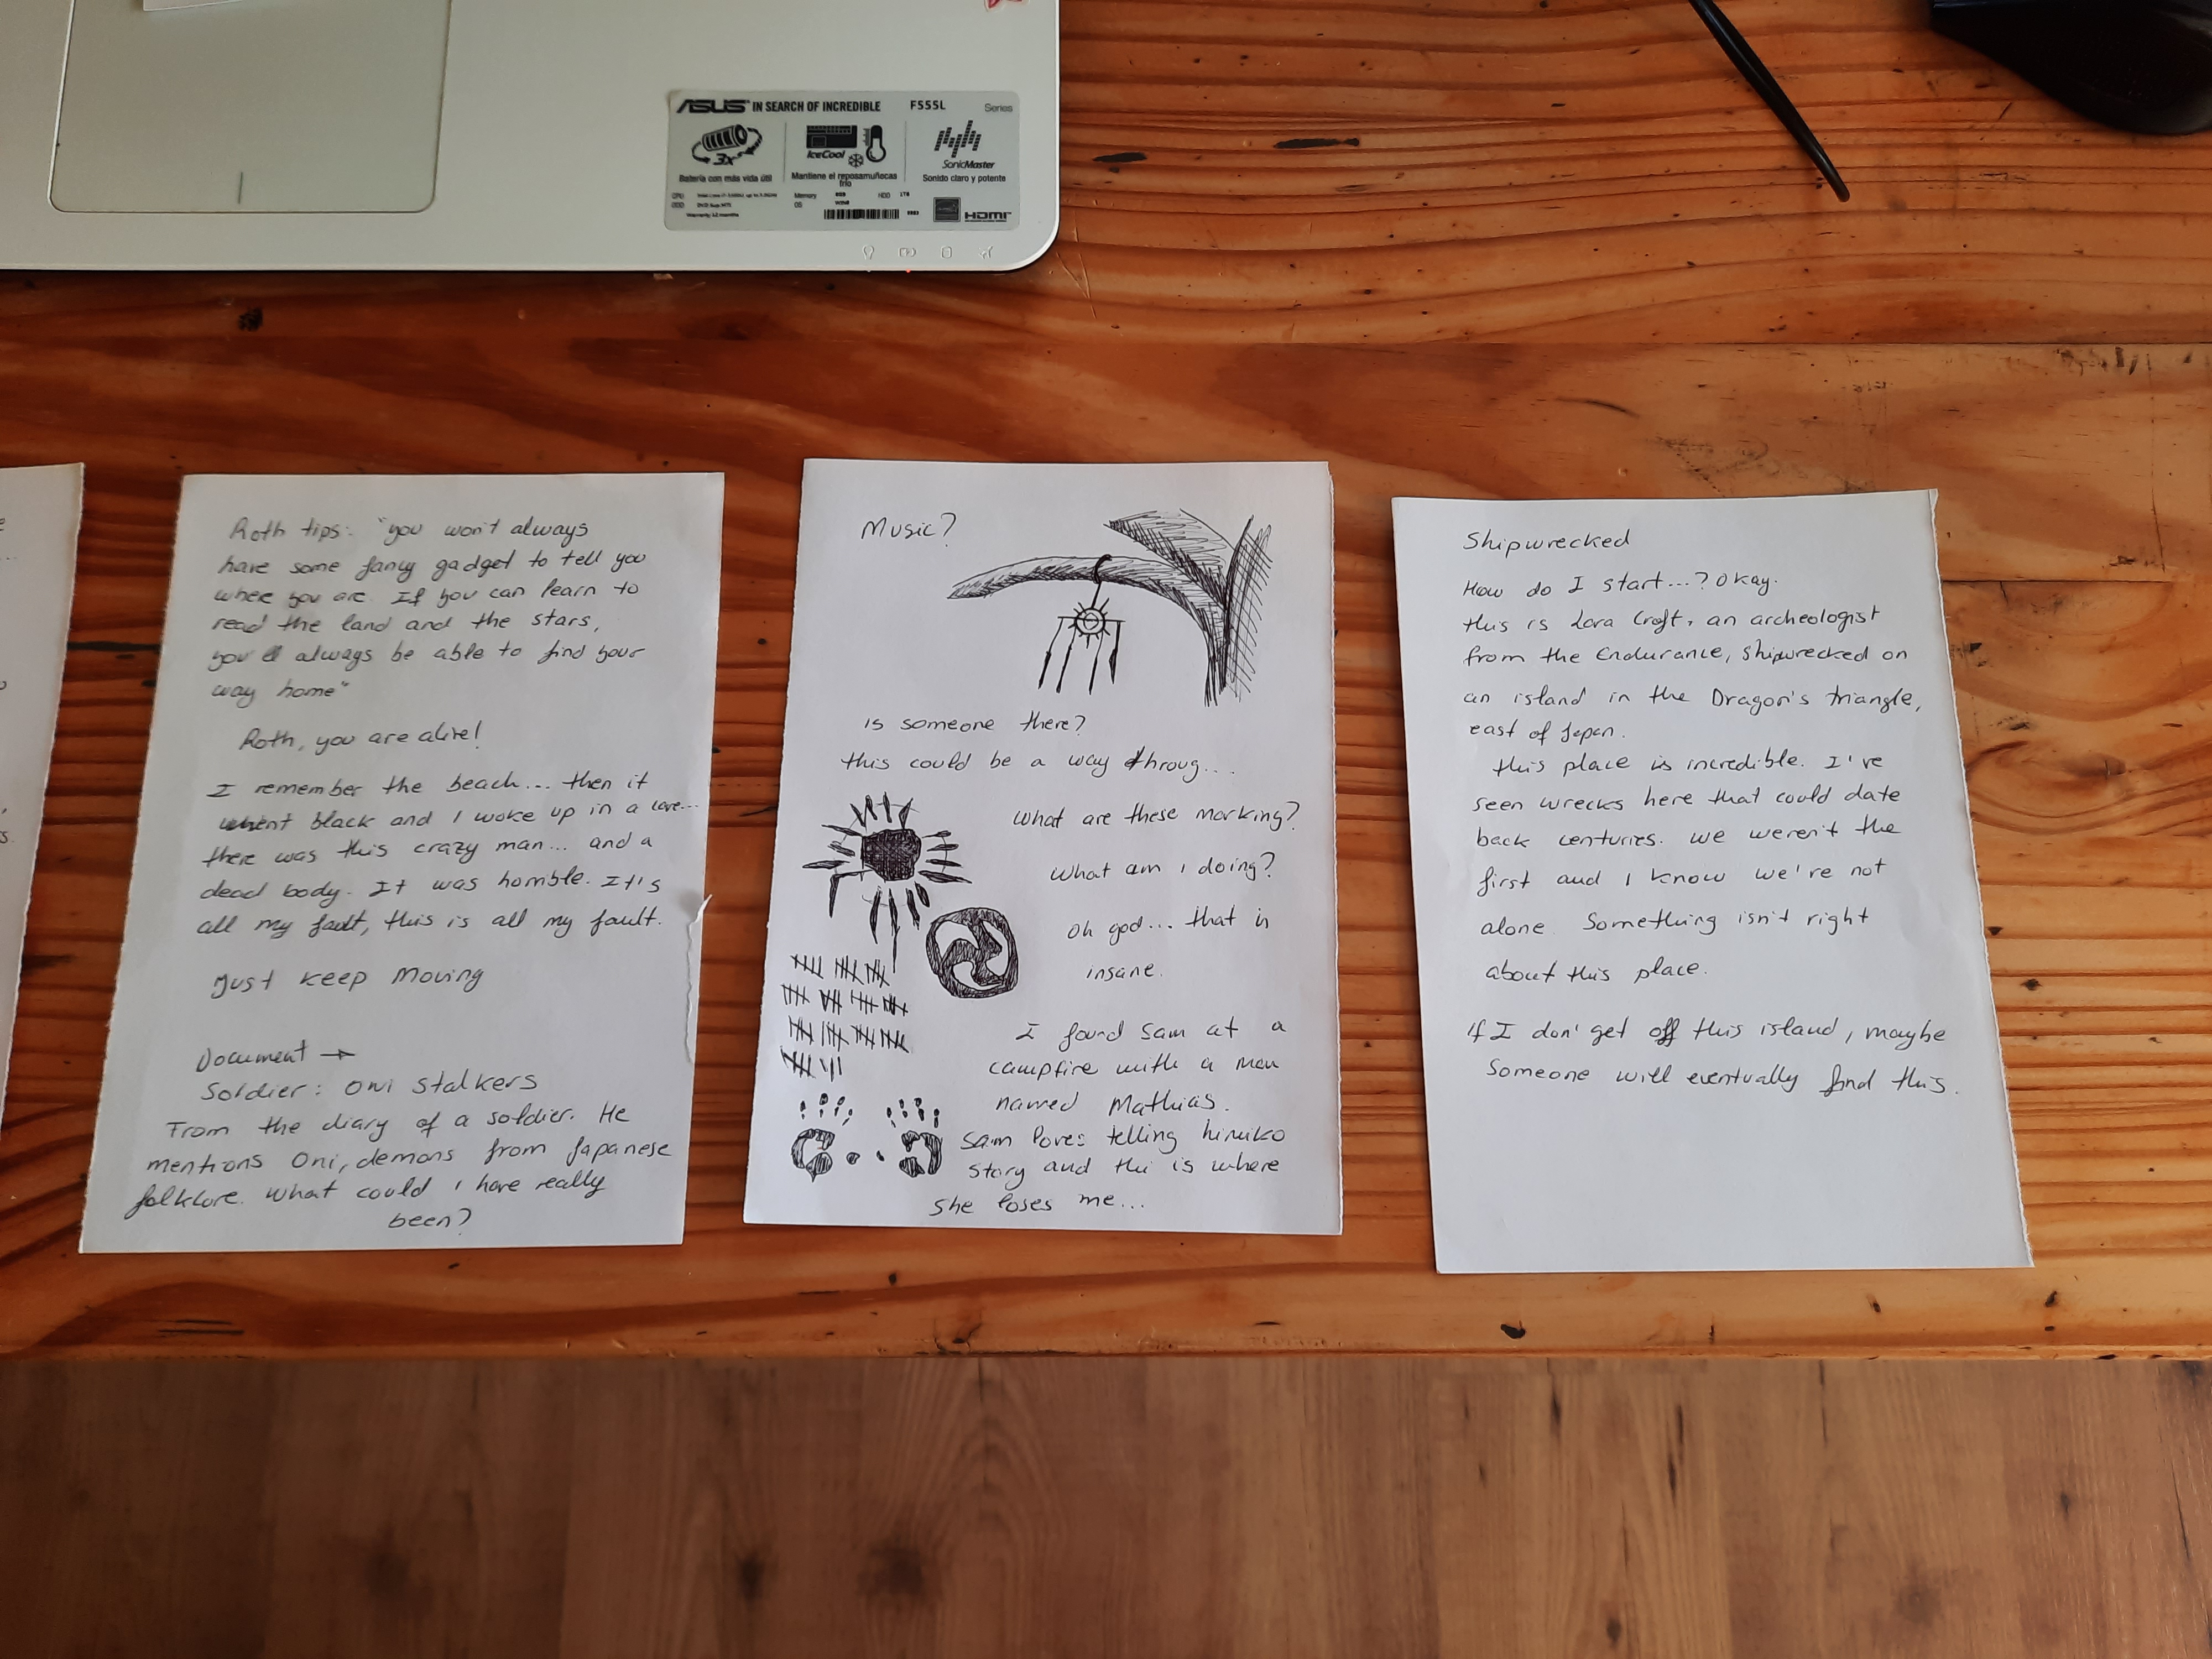 ASUS IN SEARCH OF INCREDIBLE F555L Series
3x
IceCool
SonicMaster
Batería con más vida útil
Mantiene el reposamuñecas frío
Sonido claro y potente
Memory HDD 1TB
OS
Warranty 12 months
HDMI
Roth tips: "you won't always
have some fancy gadget to tell you
where you are. If you can learn to
read the land and the stars,
you'll always be able to find your
way home"
Roth, you are alive!
I remember the beach... then it
went black and I woke up in a cave...
there was this crazy man... and a
dead body. It was horrible. It's
all my fault, this is all my fault.
Just keep moving
Document →
Soldier: Oni Stalkers
From the diary of a soldier. He
mentions Oni, demons from Japanese
folklore. What could I have really
been?
Music?
is someone there?
this could be a way throug...
What are these marking?
What am I doing?
Oh god... that is
insane.
I found Sam at a
campfire with a man
named Mathias.
Sam loves telling himiko
story and thi is where
she loses me...
Shipwrecked
How do I start...? Okay.
this is Lara Croft, an archeologist
from the Endurance, shipwrecked on
an island in the Dragon's triangle,
east of Japan.
this place is incredible. I've
seen wrecks here that could date
back centuries. we weren't the
first and I know we're not
alone. Something isn't right
about this place.
if I don' get off this island, maybe
someone will eventually find this.